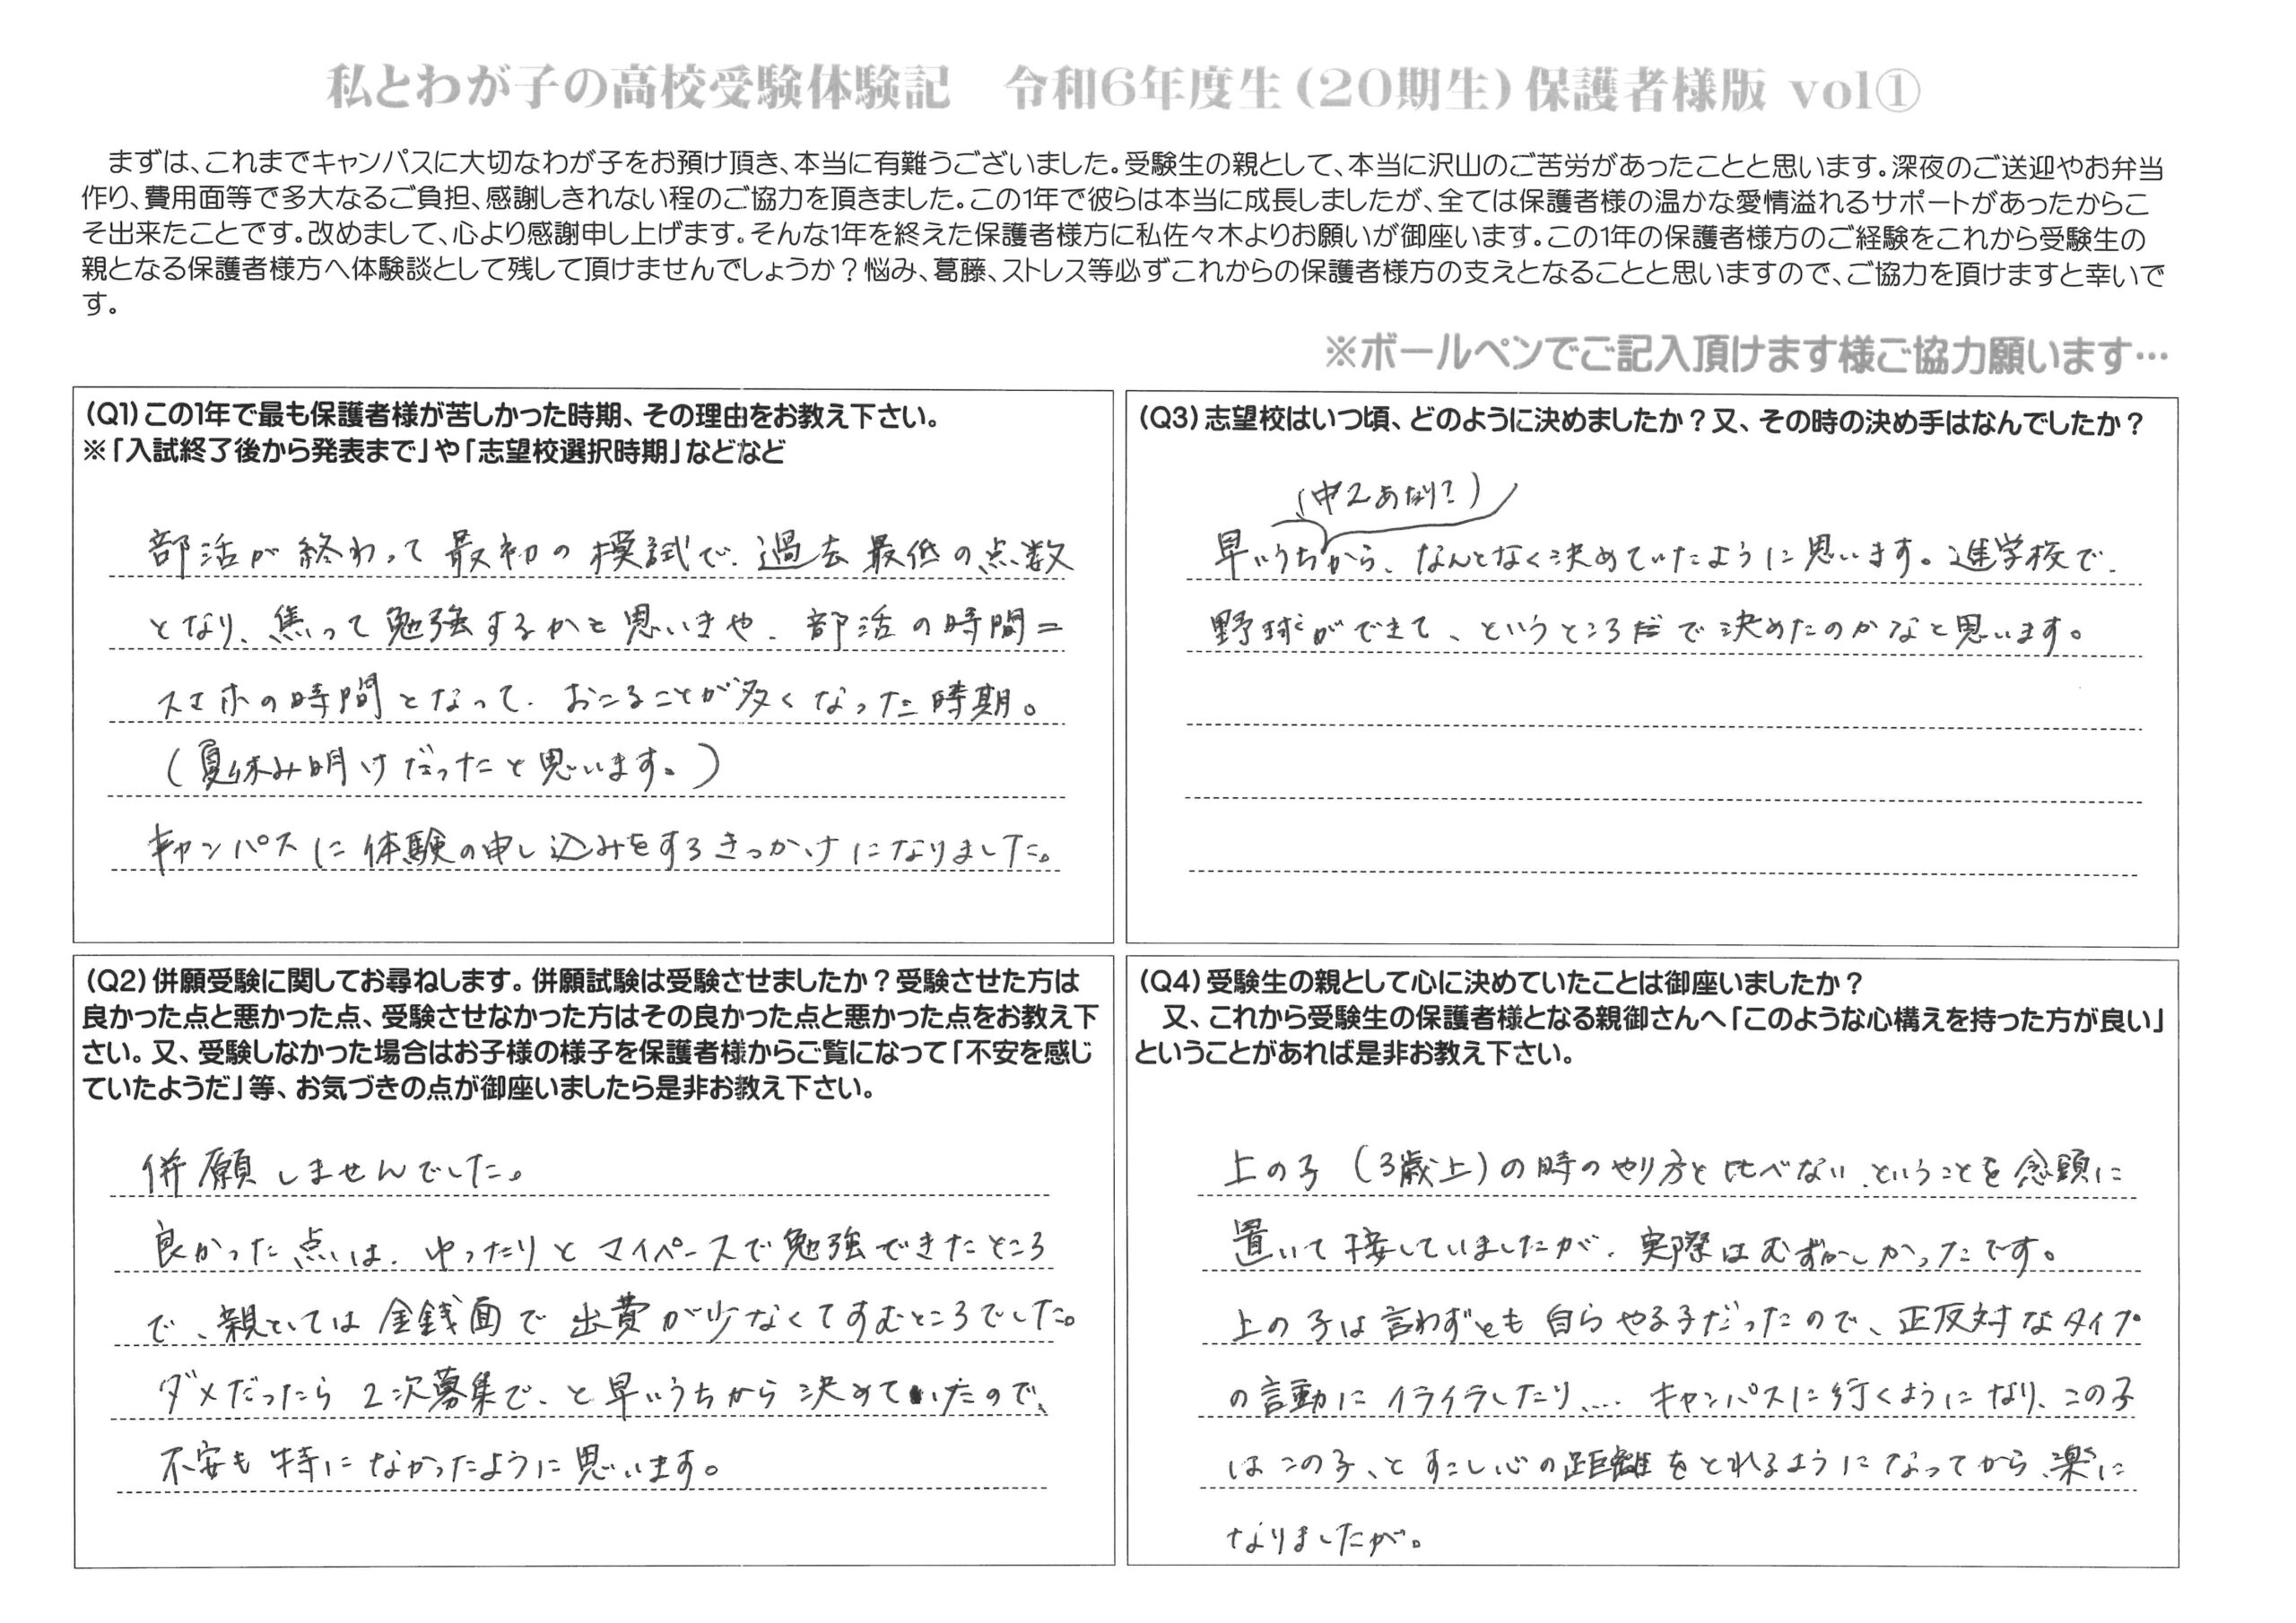 私とわが子の高校受験体験記　令和6年度生(20期生)保護者様版 vol①
まずは、これまでキャンパスに大切なわが子をお預け頂き、本当に有難うございました。受験生の親として、本当に沢山のご苦労があったことと思います。深夜のご送迎やお弁当
作り、費用面等で多大なるご負担、感謝しきれない程のご協力を頂きました。この1年で彼らは本当に成長しましたが、全ては保護者様の温かな愛情溢れるサポートがあったからこ
そ出来たことです。改めまして、心より感謝申し上げます。そんな1年を終えた保護者様方に私佐々木よりお願いが御座います。この1年の保護者様方のご経験をこれから受験生の
親となる保護者様方へ体験談として残して頂けませんでしょうか？悩み、葛藤、ストレス等必ずこれからの保護者様方の支えとなることと思いますので、ご協力を頂けますと幸いで
す。
※ボールペンでご記入頂けます様ご協力願います…
(Q1)この1年で最も保護者様が苦しかった時期、その理由をお教え下さい。
※「入試終了後から発表まで」や「志望校選択時期」などなど
部活が終わって最初の模試で、過去最低の点数
となり、焦って勉強するかと思いきや、部活の時間＝
スマホの時間となって、おこることが多くなった時期。
(夏休み明けだったと思います。)
キャンパスに体験の申し込みをするきっかけになりました。
(Q3)志望校はいつ頃、どのように決めましたか？又、その時の決め手はなんでしたか？
(中2あたり?)
早いうちから、なんとなく決めていたように思います。進学校で、
野球ができて、というところで決めたのかなと思います。
(Q2)併願受験に関してお尋ねします。併願試験は受験させましたか？受験させた方は
良かった点と悪かった点、受験させなかった方はその良かった点と悪かった点をお教え下
さい。又、受験しなかった場合はお子様の様子を保護者様からご覧になって「不安を感じ
ていたようだ」等、お気づきの点が御座いましたら是非お教え下さい。
併願しませんでした。
良かった点は、ゆったりとマイペースで勉強できたところ
で、親としては金銭面で出費が少なくてすむところでした。
ダメだったら2次募集で、と早いうちから決めていたので、
不安も特になかったように思います。
(Q4)受験生の親として心に決めていたことは御座いましたか？
又、これから受験生の保護者様となる親御さんへ「このような心構えを持った方が良い」
ということがあれば是非お教え下さい。
上の子(3歳上)の時のやり方と比べない、ということを念頭に
置いて接していましたが、実際はむずかしかったです。
上の子は言わずとも自らやる子だったので、正反対なタイプ
の言動にイライラしたり、… キャンパスに行くようになり、この子
はこの子、とすこし心の距離をとれるようになってから、楽に
なりましたが。